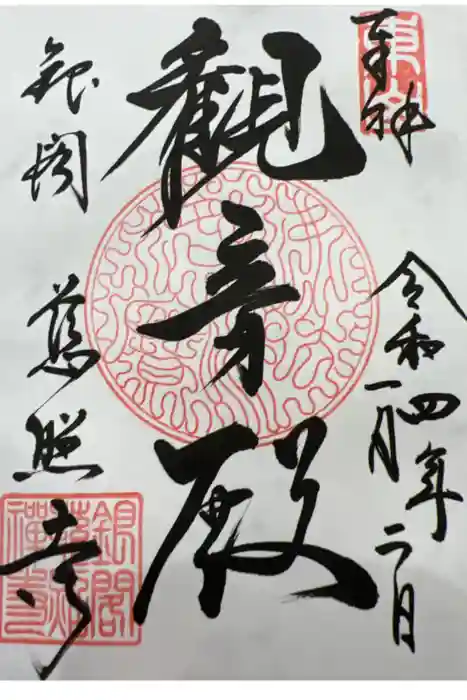 奉拝
令和四年
一月二日
観音殿
銀閣
慈照寺
銀閣
慈照
禅寺